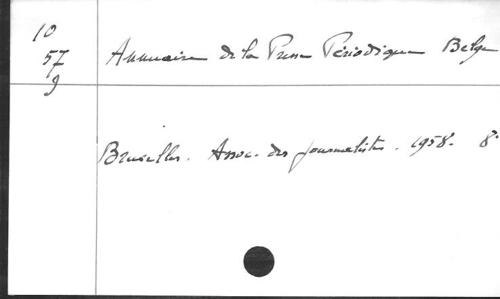 10
57
9
Annuaire de la Presse Périodique Belge
Bruxelles. Assoc. des journalistes. 1958. 8°